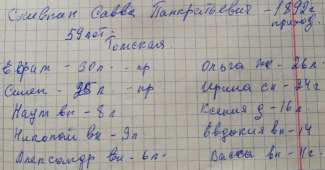 Сливкин Савва Панкратьевич - 1899г
приход.
59 лет.
Томская.
Еврат - 30 л. - пр Ольга ж - 26 л
Семен - л - пр Ирина сн - 24г
Наум вн - 8 л Ксения д - 16 л
Николай вн - 9 л Евдокия вн - 14
Александр вн - 6 л. Васса вн - 11 г.